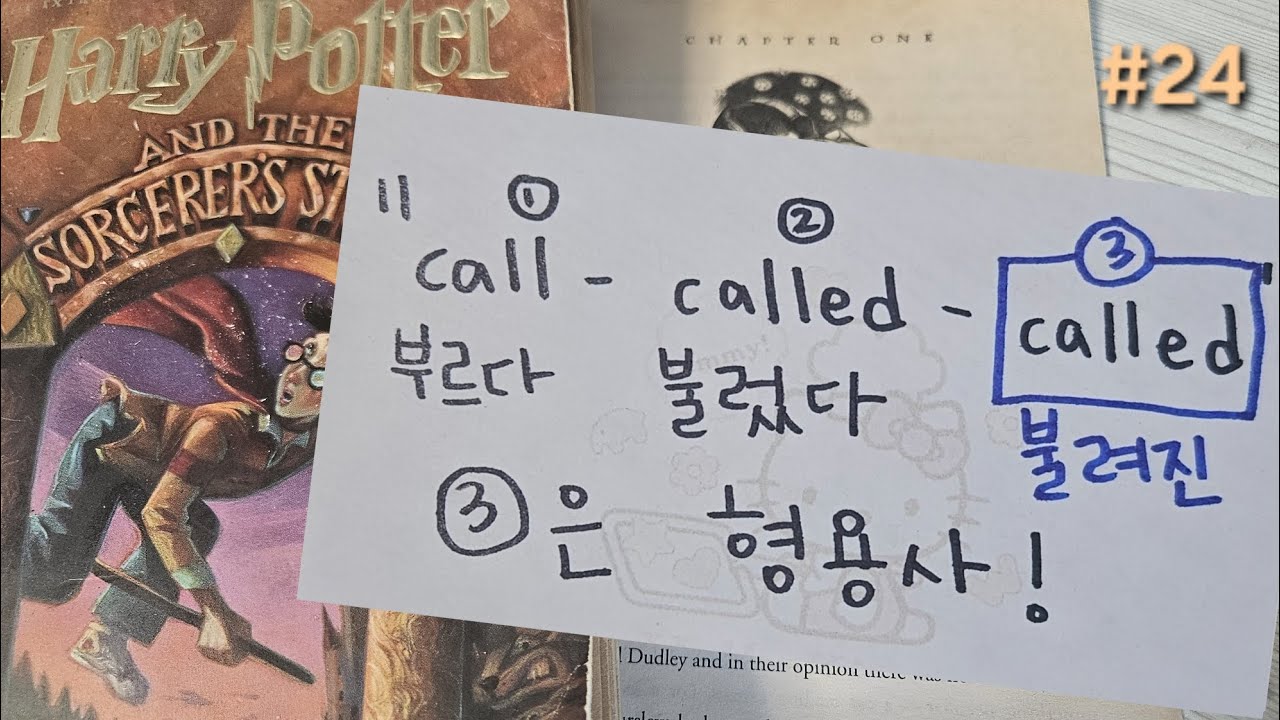 Harry Potter
AND THE
SORCERER'S ST
CHAPTER ONE
#24
" ① ② ③
call - called - called "
부르다 불렀다 불려진
③은 형용사!
mmy!
! Dudley and in their opinion there was